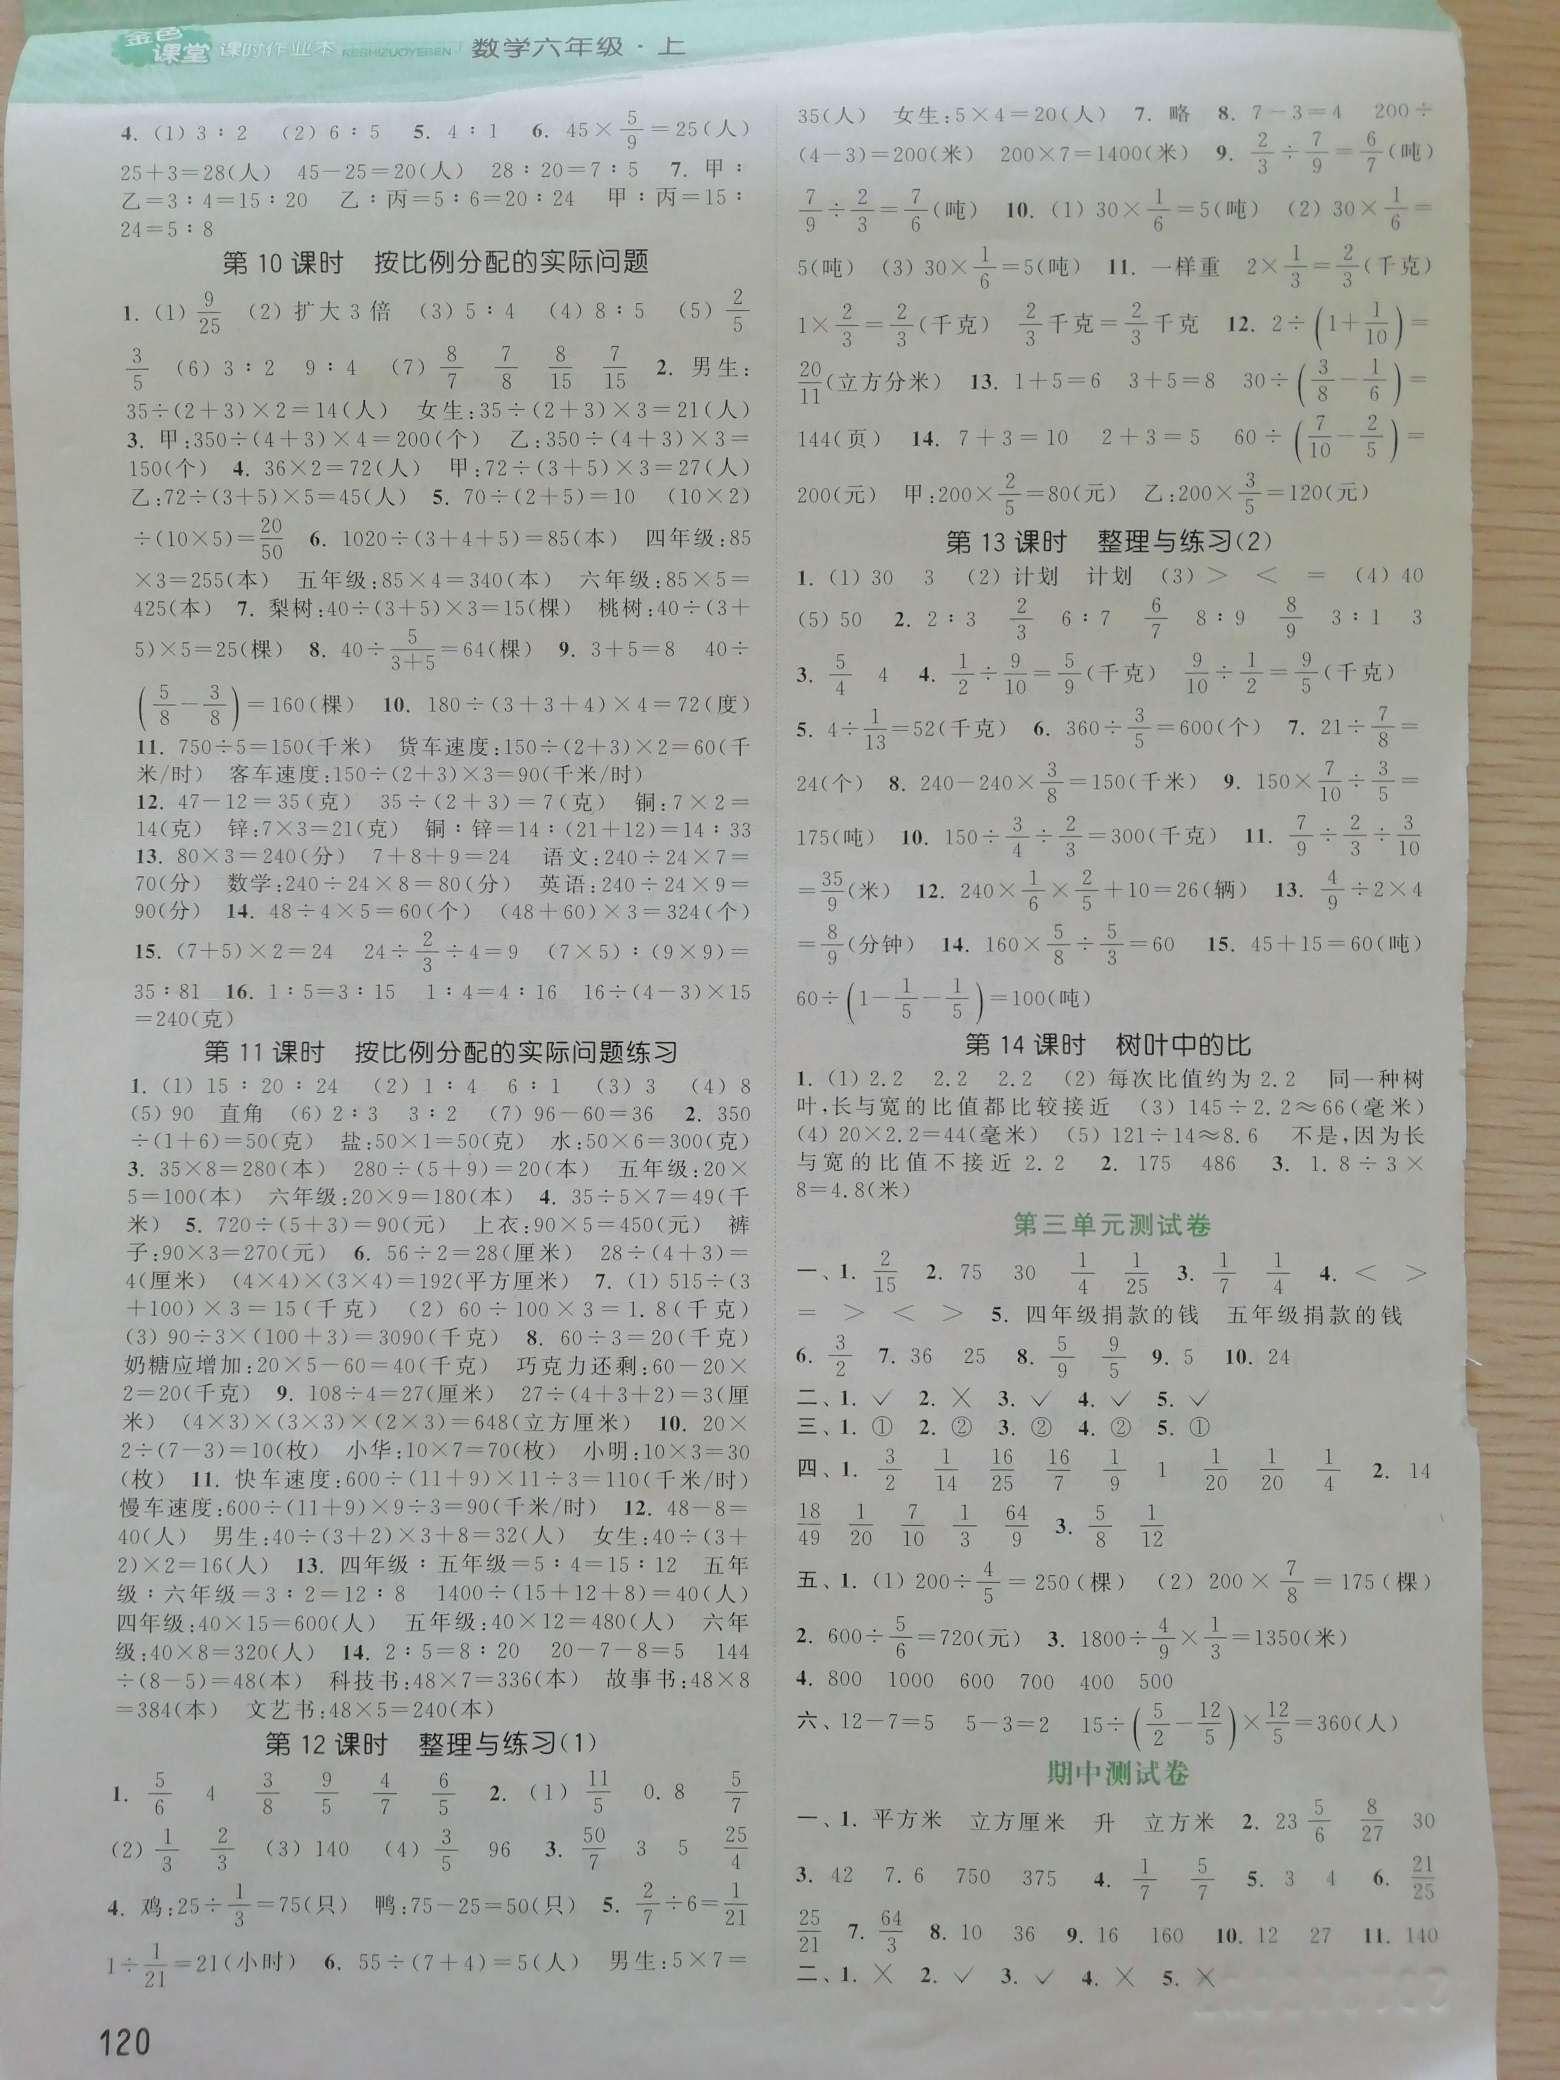 金色课堂 课时作业本 KESHIZUOYEBEN 数学六年级·上
4. (1) 3∶2 (2) 6∶5 5. 4∶1 6. 45×5/9=25(人)
25+3=28(人) 45-25=20(人) 28∶20=7∶5 7. 甲∶
乙=3∶4=15∶20 乙∶丙=5∶6=20∶24 甲∶丙=15∶
24=5∶8
第 10 课时 按比例分配的实际问题
1. (1) 9/25 (2) 扩大 3 倍 (3) 5∶4 (4) 8∶5 (5) 2/5
3/5 (6) 3∶2 9∶4 (7) 8/7 7/8 8/15 7/15 2. 男生:
35÷(2+3)×2=14(人) 女生:35÷(2+3)×3=21(人)
3. 甲:350÷(4+3)×4=200(个) 乙:350÷(4+3)×3=
150(个) 4. 36×2=72(人) 甲:72÷(3+5)×3=27(人)
乙:72÷(3+5)×5=45(人) 5. 70÷(2+5)=10 (10×2)
÷(10×5)=20/50 6. 1020÷(3+4+5)=85(本) 四年级:85
×3=255(本) 五年级:85×4=340(本) 六年级:85×5=
425(本) 7. 梨树:40÷(3+5)×3=15(棵) 桃树:40÷(3+
5)×5=25(棵) 8. 40÷5/(3+5)=64(棵) 9. 3+5=8 40÷
(5/8-3/8)=160(棵) 10. 180÷(3+3+4)×4=72(度)
11. 750÷5=150(千米) 货车速度:150÷(2+3)×2=60(千
米/时) 客车速度:150÷(2+3)×3=90(千米/时)
12. 47-12=35(克) 35÷(2+3)=7(克) 铜:7×2=
14(克) 锌:7×3=21(克) 铜∶锌=14∶(21+12)=14∶33
13. 80×3=240(分) 7+8+9=24 语文:240÷24×7=
70(分) 数学:240÷24×8=80(分) 英语:240÷24×9=
90(分) 14. 48÷4×5=60(个) (48+60)×3=324(个)
15. (7+5)×2=24 24÷2/3÷4=9 (7×5)∶(9×9)=
35∶81 16. 1∶5=3∶15 1∶4=4∶16 16÷(4-3)×15
=240(克)
第 11 课时 按比例分配的实际问题练习
1. (1) 15∶20∶24 (2) 1∶4 6∶1 (3) 3 (4) 8
(5) 90 直角 (6) 2∶3 3∶2 (7) 96-60=36 2. 350
÷(1+6)=50(克) 盐:50×1=50(克) 水:50×6=300(克)
3. 35×8=280(本) 280÷(5+9)=20(本) 五年级:20×
5=100(本) 六年级:20×9=180(本) 4. 35÷5×7=49(千
米) 5. 720÷(5+3)=90(元) 上衣:90×5=450(元) 裤
子:90×3=270(元) 6. 56÷2=28(厘米) 28÷(4+3)=
4(厘米) (4×4)×(3×4)=192(平方厘米) 7. (1) 515÷(3
+100)×3=15(千克) (2) 60÷100×3=1.8(千克)
(3) 90÷3×(100+3)=3090(千克) 8. 60÷3=20(千克)
奶糖应增加:20×5-60=40(千克) 巧克力还剩:60-20×
2=20(千克) 9. 108÷4=27(厘米) 27÷(4+3+2)=3(厘
米) (4×3)×(3×3)×(2×3)=648(立方厘米) 10. 20×
2÷(7-3)=10(枚) 小华:10×7=70(枚) 小明:10×3=30
(枚) 11. 快车速度:600÷(11+9)×11÷3=110(千米/时)
慢车速度:600÷(11+9)×9÷3=90(千米/时) 12. 48-8=
40(人) 男生:40÷(3+2)×3+8=32(人) 女生:40÷(3+
2)×2=16(人) 13. 四年级∶五年级=5∶4=15∶12 五年
级∶六年级=3∶2=12∶8 1400÷(15+12+8)=40(人)
四年级:40×15=600(人) 五年级:40×12=480(人) 六年
级:40×8=320(人) 14. 2∶5=8∶20 20-7-8=5 144
÷(8-5)=48(本) 科技书:48×7=336(本) 故事书:48×8
=384(本) 文艺书:48×5=240(本)
第 12 课时 整理与练习(1)
1. 5/6 4 3/8 9/5 4/7 6/5 2. (1) 11/5 0.8 5/7
(2) 1/3 2/3 (3) 140 (4) 3/5 96 3. 50/7 3 5 25/4
4. 鸡:25÷1/3=75(只) 鸭:75-25=50(只) 5. 2/7÷6=1/21
1÷1/21=21(小时) 6. 55÷(7+4)=5(人) 男生:5×7=
120
35(人) 女生:5×4=20(人) 7. 略 8. 7-3=4 200÷
(4-3)=200(米) 200×7=1400(米) 9. 2/3÷7/9=6/7(吨)
7/9÷2/3=7/6(吨) 10. (1) 30×1/6=5(吨) (2) 30×1/6=
5(吨) (3) 30×1/6=5(吨) 11. 一样重 2×1/3=2/3(千克)
1×2/3=2/3(千克) 2/3千克=2/3千克 12. 2÷(1+1/10)=
20/11(立方分米) 13. 1+5=6 3+5=8 30÷(3/8-1/6)=
144(页) 14. 7+3=10 2+3=5 60÷(7/10-2/5)=
200(元) 甲:200×2/5=80(元) 乙:200×3/5=120(元)
第 13 课时 整理与练习(2)
1. (1) 30 3 (2) 计划 计划 (3) > < = (4) 40
(5) 50 2. 2∶3 2/3 6∶7 6/7 8∶9 8/9 3∶1 3
3. 5/4 4 4. 1/2÷9/10=5/9(千克) 9/10÷1/2=9/5(千克)
5. 4÷1/13=52(千克) 6. 360÷3/5=600(个) 7. 21÷7/8=
24(个) 8. 240-240×3/8=150(千米) 9. 150×7/10÷3/5=
175(吨) 10. 150÷3/4÷2/3=300(千克) 11. 7/9÷2/3÷3/10
=35/9(米) 12. 240×1/6×2/5+10=26(辆) 13. 4/9÷2×4
=8/9(分钟) 14. 160×5/8÷5/3=60 15. 45+15=60(吨)
60÷(1-1/5-1/5)=100(吨)
第 14 课时 树叶中的比
1. (1) 2.2 2.2 2.2 (2) 每次比值约为 2.2 同一种树
叶,长与宽的比值都比较接近 (3) 145÷2.2≈66(毫米)
(4) 20×2.2=44(毫米) (5) 121÷14≈8.6 不是,因为长
与宽的比值不接近 2.2 2. 175 486 3. 1.8÷3×
8=4.8(米)
第三单元测试卷
一、1. 2/15 2. 75 30 1/4 1/25 3. 1/7 1/4 4. < >
= > < > 5. 四年级捐款的钱 五年级捐款的钱
6. 3/2 7. 36 25 8. 5/9 9/5 9. 5 10. 24
二、1. ✓ 2. × 3. ✓ 4. ✓ 5. ✓
三、1. ① 2. ② 3. ② 4. ② 5. ①
四、1. 3/2 1/14 16/25 16/7 1/9 1 1/20 1/20 1/4 2. 14
18/49 1/20 7/10 1/3 64/9 3. 5/8 1/12
五、1. (1) 200÷4/5=250(棵) (2) 200×7/8=175(棵)
2. 600÷5/6=720(元) 3. 1800÷4/9×1/3=1350(米)
4. 800 1000 600 700 400 500
六、12-7=5 5-3=2 15÷(5/2-12/5)×12/5=360(人)
期中测试卷
一、1. 平方米 立方厘米 升 立方米 2. 23 5/6 8/27 30
3. 42 7.6 750 375 4. 1/7 5/7 5. 3 4 6. 21/25
25/21 7. 64/3 8. 10 36 9. 16 160 10. 12 27 11. 140
二、1. × 2. ✓ 3. ✓ 4. × 5. ×